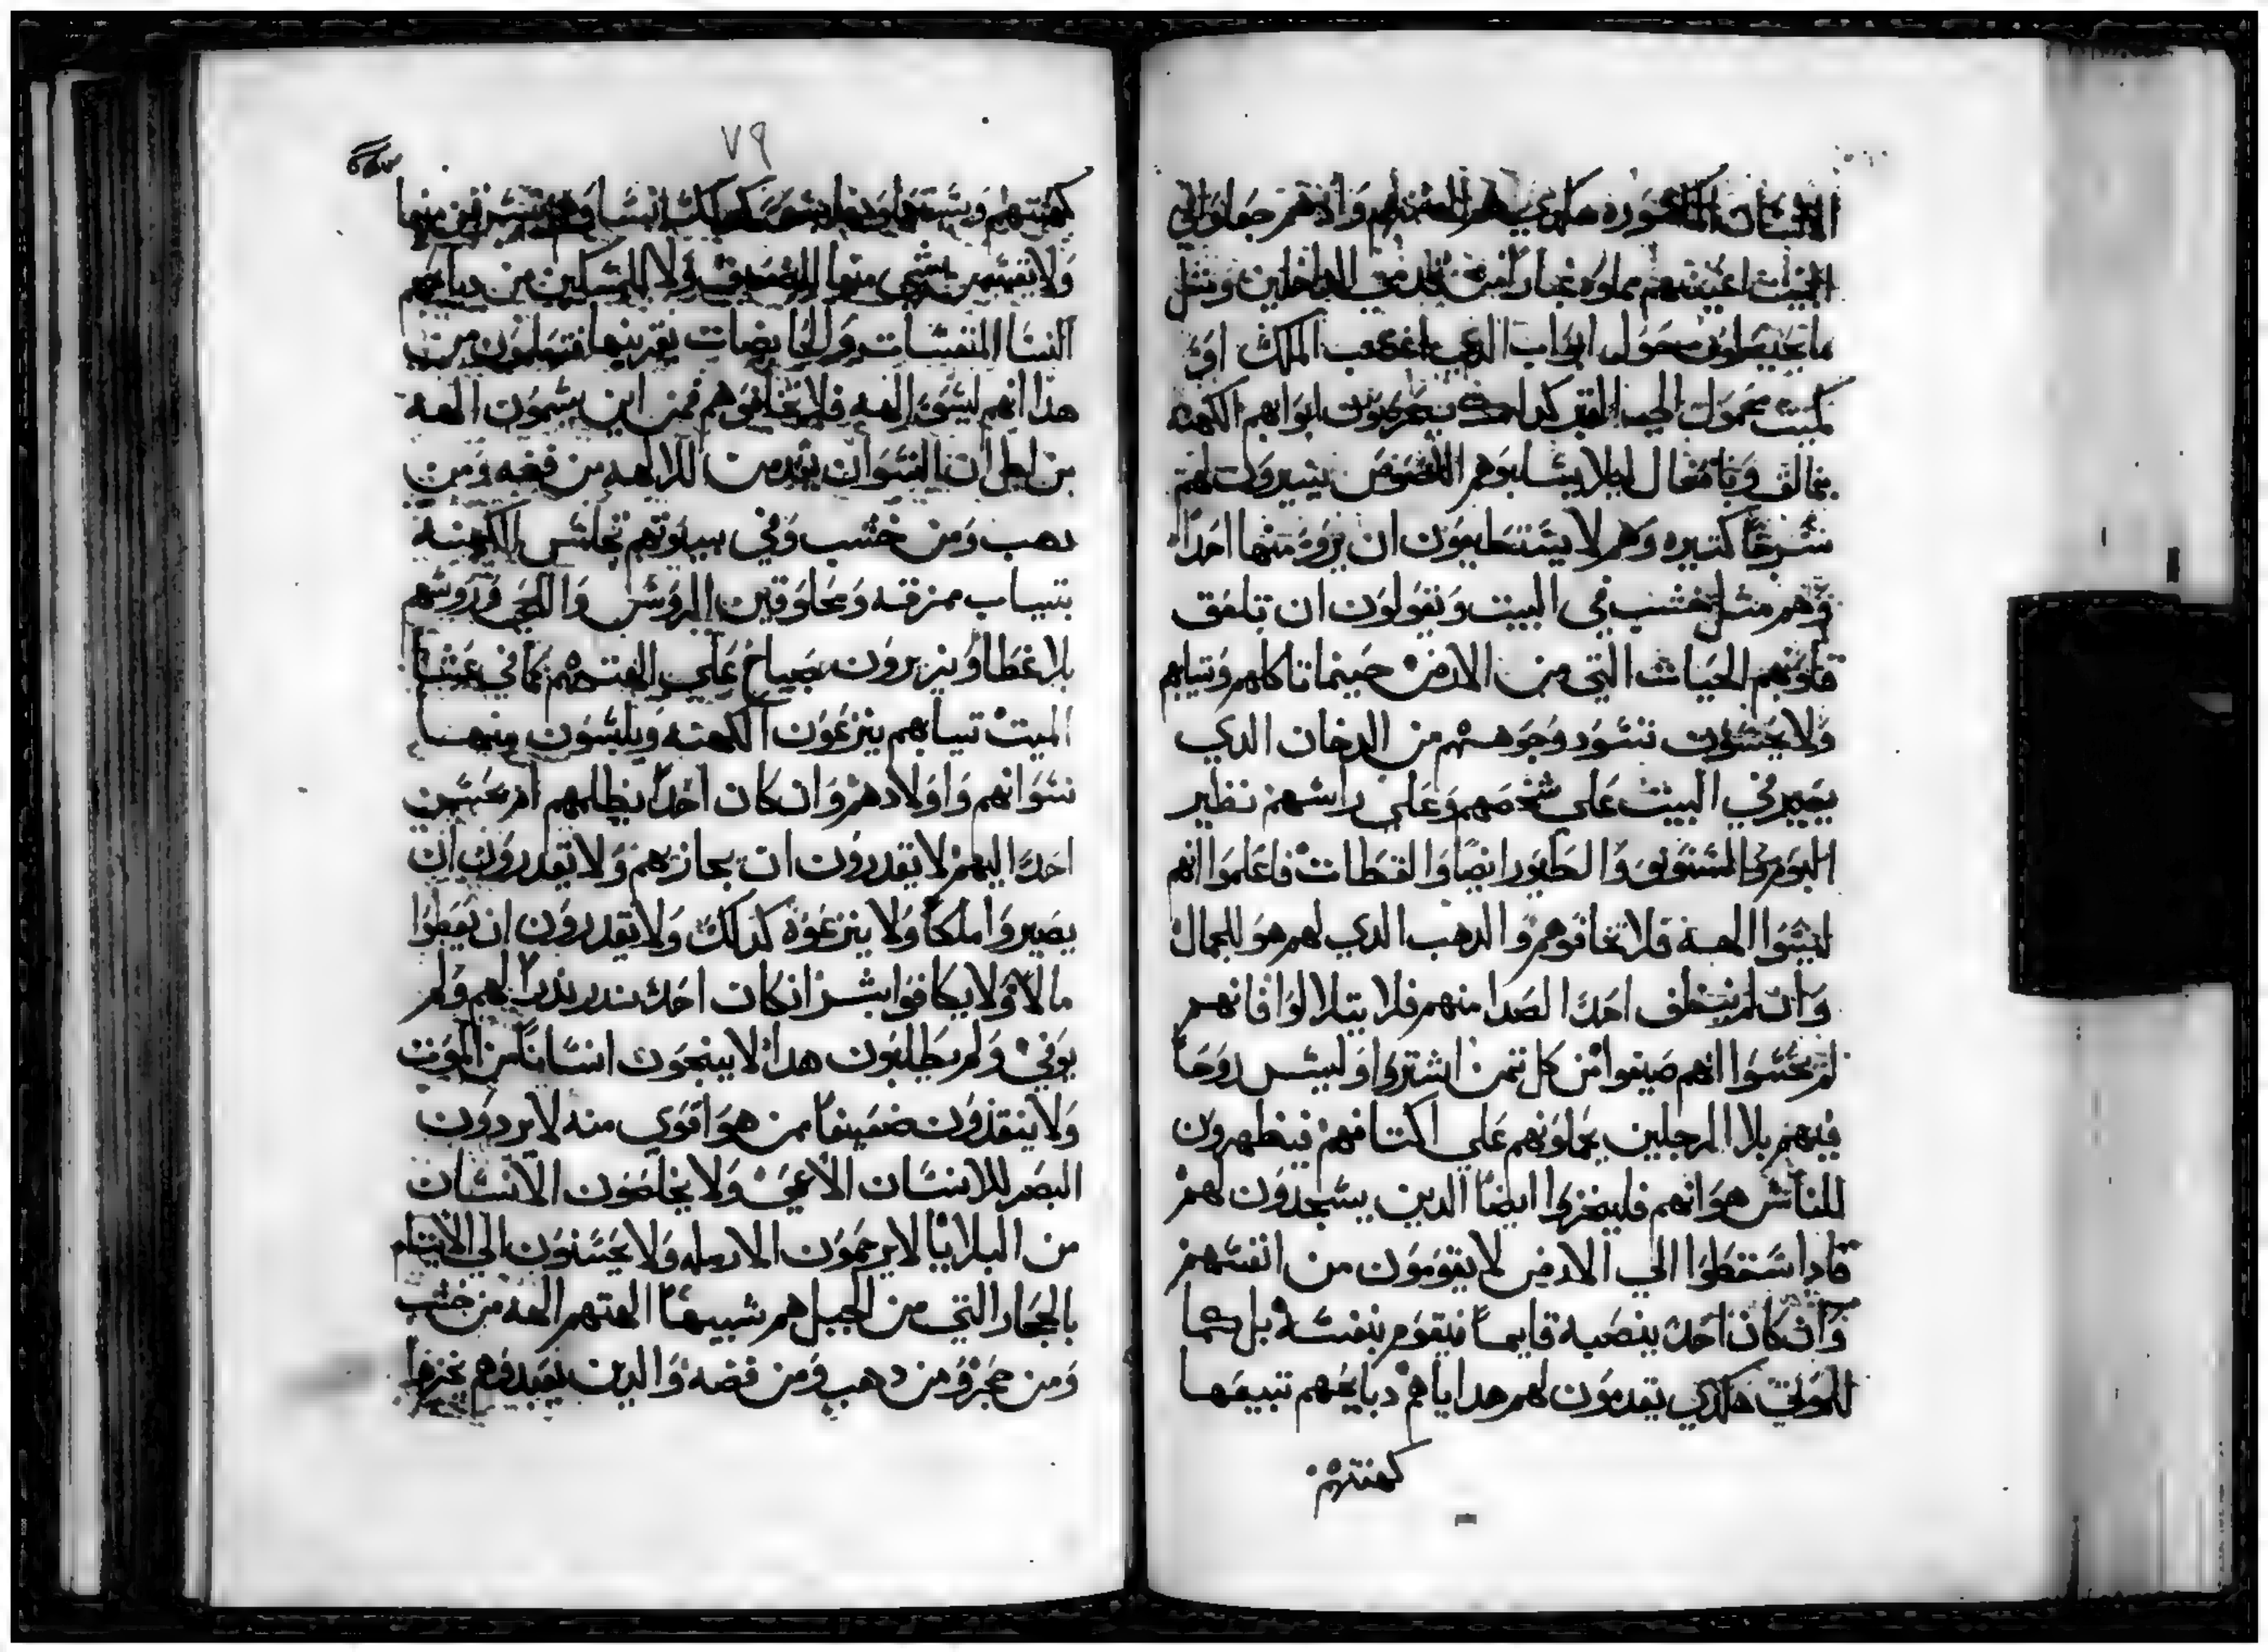 وانهم جعلوا في
البيت اعينهم مملوه غبارا من الداخلين ومثل
ابواب الدي اغضب الملك اوك
كميت ابوابهم الكهنه
وباقفال ليلا يسلبوهم اللصوص يسيرون لهم
سرجا كتيره وهم لا يستطيعون ان يروه منها احدا
وهم متل خشب في البيت ونقولون ان تلعق
قلوبهم الحيات التي من الارض حينما تاكلهم وتيابهم
ولا يحسون تسود وجوههم من الدخان الدي
يصير في البيت على شخصهم وعلي راسهم نظير
البوم والسنونو والطيور ايضا والقطات فاعلموا انهم
ليسوا الهه فلا تخافوهم والدهب الدي لهم هو للجمال
وان لم ينظف احدا الصدا منهم فلا يتلالوا فانهم
لم يحسوا انهم صيغوا من كل تمن اشتروا وليس روحا
فيهم بلا الرجلين يحملونهم على اكتافهم فيظهرون
للناس هوانهم فليخزوا ايضا الدين يسجدون لهم
فادا سقطوا الي الارض لا يقومون من انفسهم
وان كان احد ينصبه قايما فيقوم بنفسه بل كما
للموتي هكدي يقدمون لهم هداياهم دبايحهم تبيعها
كهنتهم
٧٩
كهنتهم منها
ولا تقسم بشي منها للضعيف ولا للمساكين من دبايحهم
النسا المنفسات والحايضات يقربنها فتعلمون من
هدا انهم ليسوا الهه فلا تخافوهم فمن اين يسمون الهه
من اجل ان النسوان يقدمن للالهه من فضه ومن
دهب ومن خشب وفي بيوتهم تجلس الكهنه
بتياب ممزقه ومحلوقين الروس واللحى وروسهم
بلا غطا ويزيرون بصياح علي الهتهم كما في عشا
الميت تيابهم ينزعون الكهنه ويلبسون منها
نسوانهم واولادهم وان كان احدا يظلمهم ام يحسن
احدا اليهم لا يقدرون ان يجازيهم ولا يقدرون ان
يصيروا ملكا ولا ينزعوه كدلك ولا يقدرون ان يعطوا
مالا ولا يكافوا بشر ان كان احد ندر ندرا لهم ولم
يوفي ولم يطلبون هدا لا ينجون انسانا من الموت
ولا ينقذون ضعيفا ممن هو اقوي منه لا يردون
البصر للانسان الاعمي ولا يخلصون الانسان
من البلايا لا يرحمون الارمله ولا يحسنون الي الايتام
بالحجار التي من الجبل هم شبيها الهتهم الهه من خشب
ومن حجر ومن دهب ومن فضه والدين يعبدوهم يخزوا